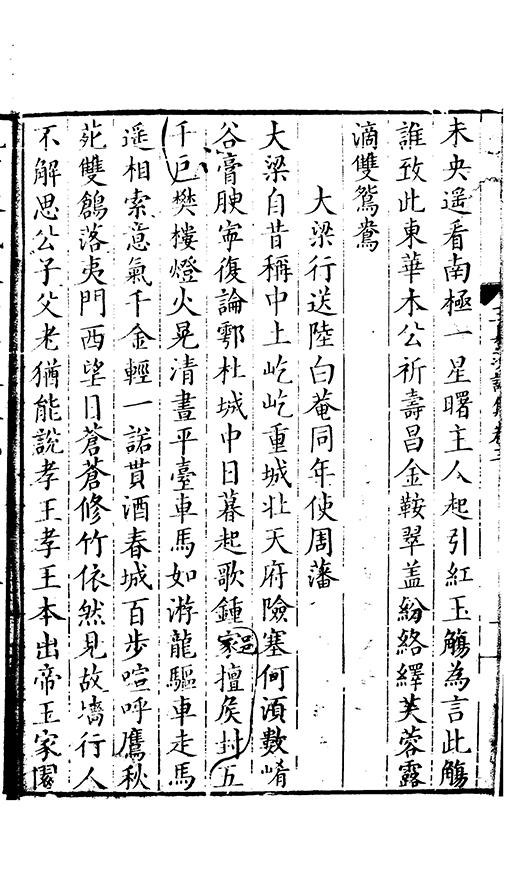 未央遥看南極一星曙主人起引紅玉觴為言此觴
誰致此東華木公祈壽昌金鞍翠盖紛絡繹芙蓉露
滴雙鴛鴦
大梁行送陸白菴同年使周藩
大梁自昔稱中土屹屹重城壯天府險塞何湏數崤
谷膏腴寕復論鄠杜城中日暮起歌鍾家邑擅矦封五
千巨樊樓燈火晃清晝平臺車馬如游龍驅車走馬
遥相索意氣千金輕一諾貰酒春城百步喧呼鷹秋
苑雙鶬落夷門西望日蒼蒼修竹依然見故墻行人
不解思公子父老猶能說孝王孝王本出帝王家園